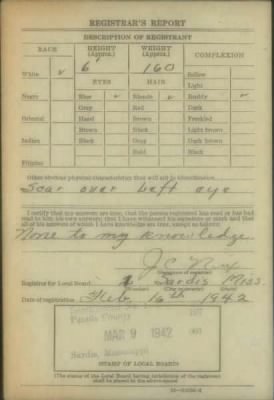 REGISTRAR'S REPORT
DESCRIPTION OF REGISTRANT
RACE HEIGHT (Approx.) WEIGHT (Approx.) COMPLEXION
6 160
White ✓ Sallow
EYES HAIR Light
Negro Blue ✓ Blonde ✓ Ruddy ✓
Gray Red Dark
Oriental Hazel Brown Freckled
Brown Black Light brown
Indian Black Gray Dark brown
Bald Black
Filipino
Other obvious physical characteristics that will aid in identification
Scar over left eye
I certify that my answers are true; that the person registered has read or has had
read to him his own answers; that I have witnessed his signature or mark and that
all of his answers of which I have knowledge are true, except as follows:
None to my knowledge
J C
(Signature of registrar)
Registrar for Local Board Sardis Miss.
(Number) (City or county) (State)
Date of registration Feb. 16th 1942
Panola County
MAR 9 1942
Sardis, Mississippi
STAMP OF LOCAL BOARD
(The stamp of the Local Board having jurisdiction of the registrant
shall be placed in the above space)